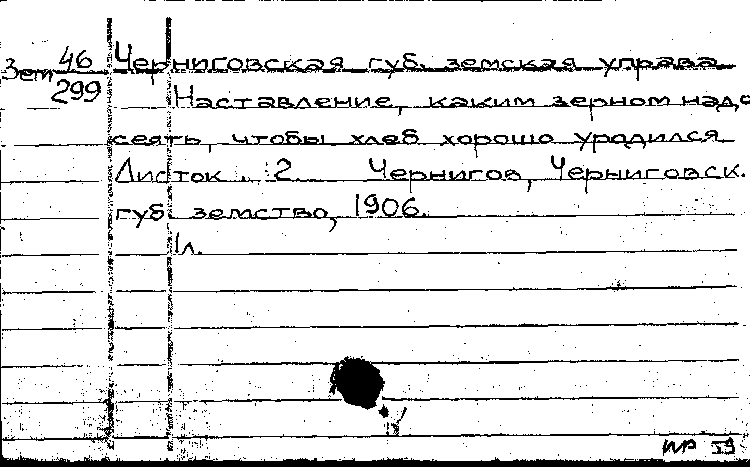 Зем 46/299 Черниговская губ. земская управа
Наставление, каким зерном надо
сеять, чтобы хлеб хорошо уродился
Листок . 2. Чернигов, Черниговск.
губ. земство, 1906.
1л.